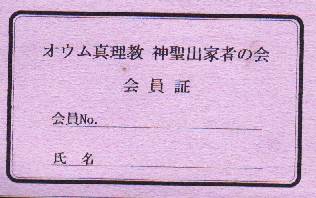 オウム真理教 神聖出家者の会
会員証
会員No.
氏名